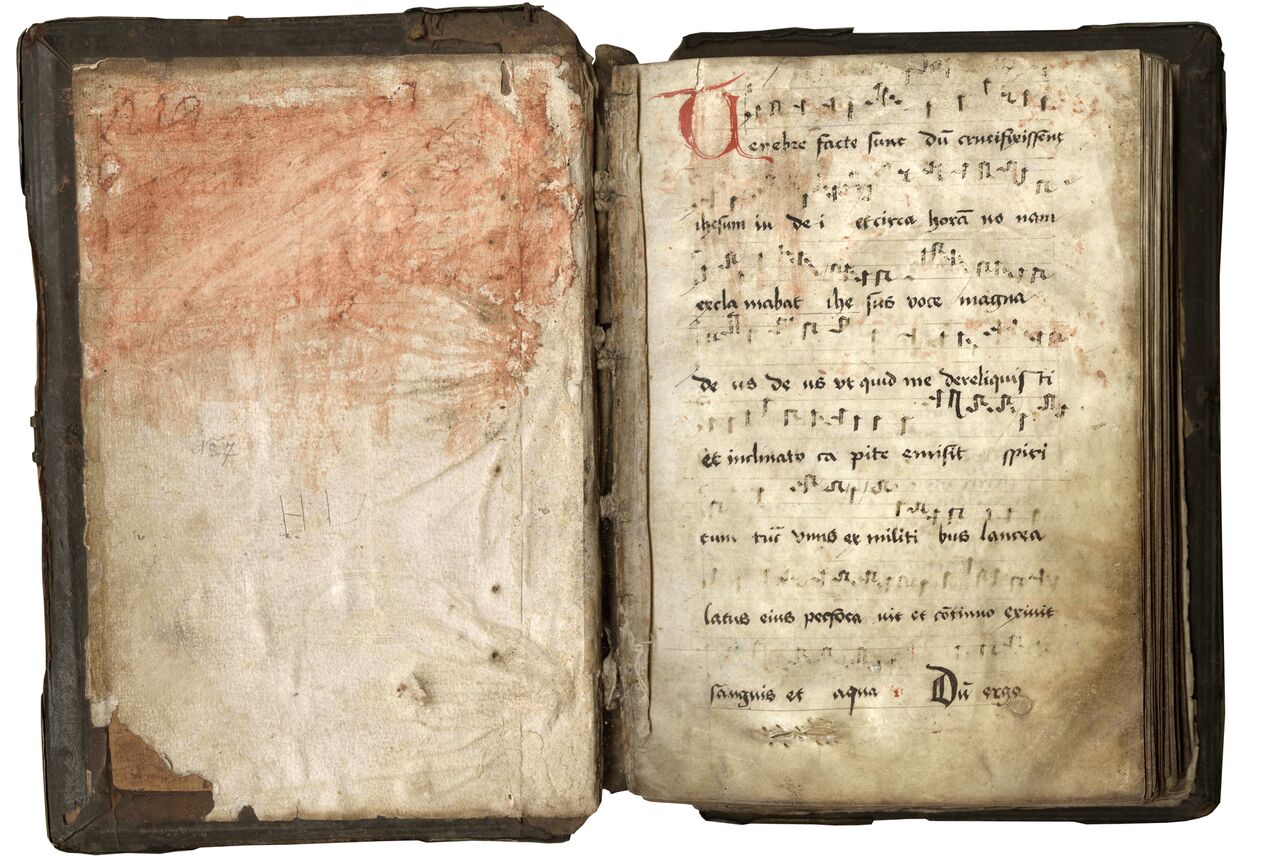 157
H I
Tenebre facte sunt dū crucifixissent
ihesum iu de i et circa horā no nam
excla mabat ihe sus voce magna
de us de us vt quid me dereliquis ti
et inclinato ca pite emisit spiri
tum tūc vnus ex militi bus lancea
latus eius perfora uit et cōtinuo exiuit
sanguis et aqua Dū ergo